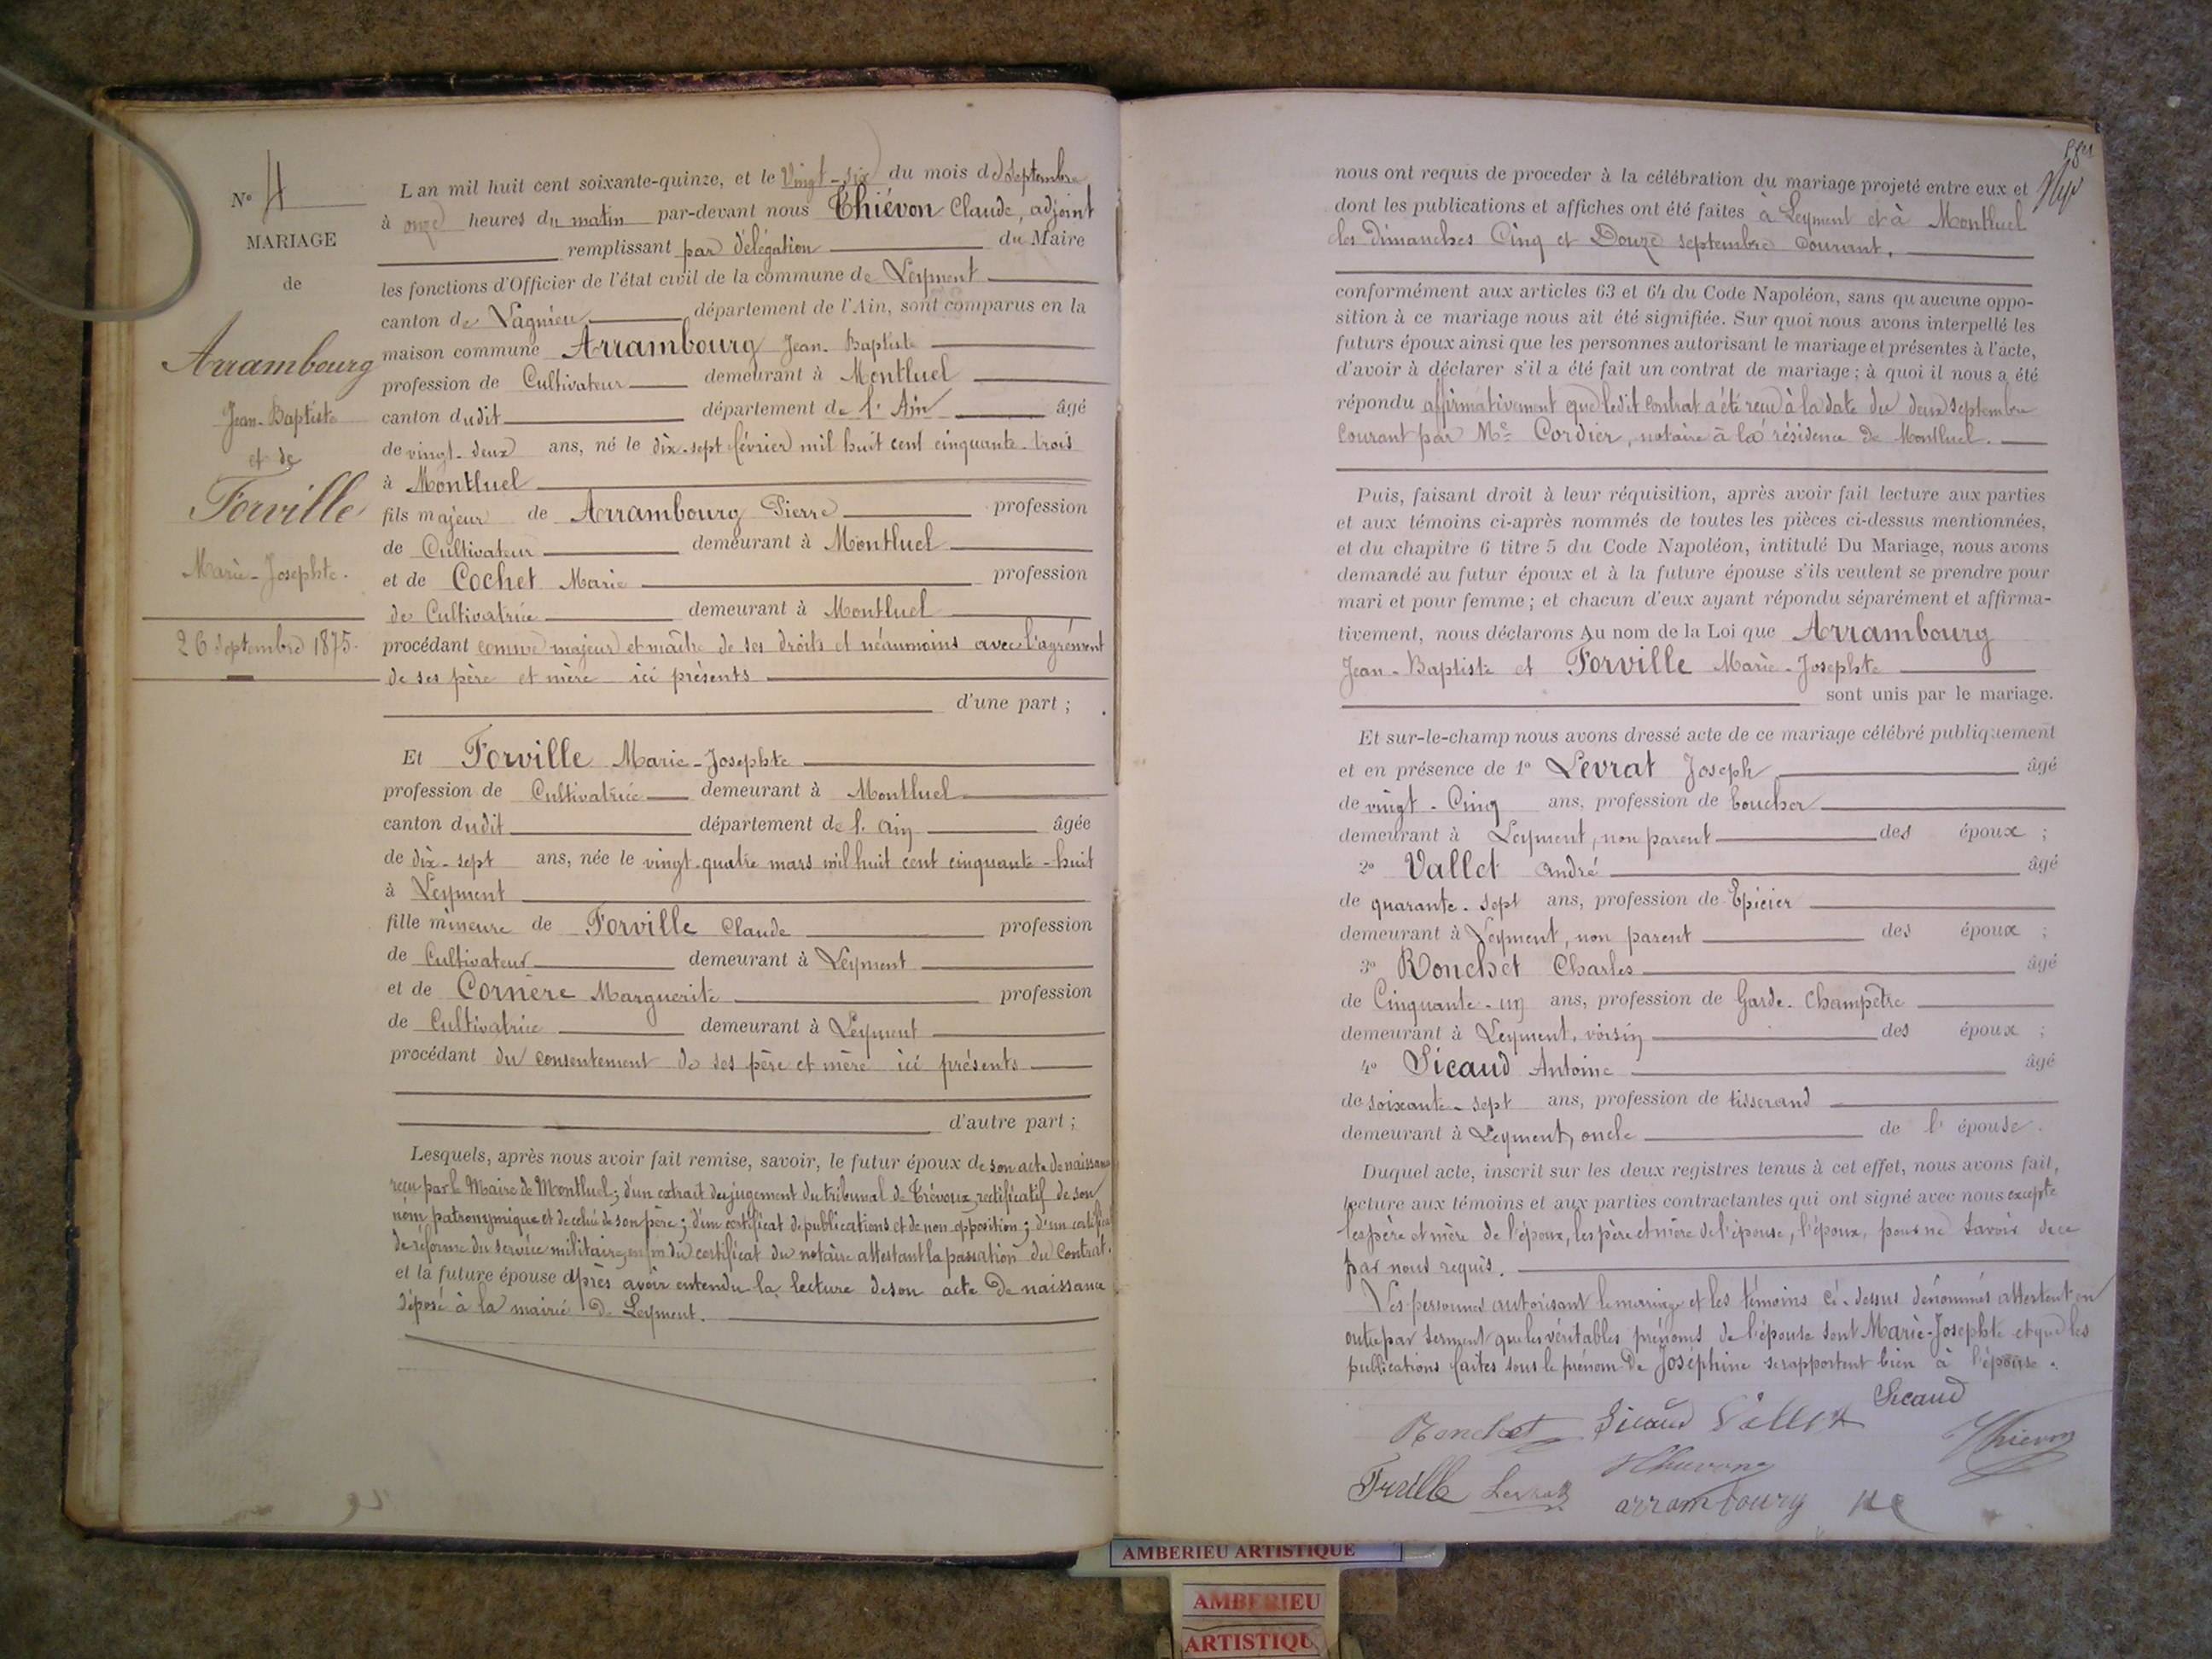 N° 4
MARIAGE
de
Arrambourg
Jean-Baptiste
et de
Forville
Marie-Josephte.
26 septembre 1875.
L'an mil huit cent soixante-quinze, et le Vingt-six du mois de septembre
à onze heures du matin par-devant nous Thiévon Claude, adjoint
remplissant par délégation du Maire
les fonctions d'Officier de l'état civil de la commune de Leyment
canton de Lagnieu département de l'Ain, sont comparus en la
maison commune Arrambourg Jean-Baptiste
profession de Cultivateur demeurant à Montluel
canton dudit département de l'Ain âgé
de vingt-deux ans, né le dix-sept février mil huit cent cinquante-trois
à Montluel
fils majeur de Arrambourg Pierre profession
de Cultivateur demeurant à Montluel
et de Cochet Marie profession
de Cultivatrice demeurant à Montluel
procédant comme majeur et maître de ses droits et néanmoins avec l'agrément
de ses père et mère ici présents
d'une part ;
Et Forville Marie-Josephte
profession de Cultivatrice demeurant à Montluel
canton dudit département de l'ain âgée
de dix-sept ans, née le vingt-quatre mars mil huit cent cinquante-huit
à Leyment
fille mineure de Forville Claude profession
de Cultivateur demeurant à Leyment
et de Cornère Marguerite profession
de Cultivatrice demeurant à Leyment
procédant du consentement de ses père et mère ici présents
d'autre part ;
Lesquels, après nous avoir fait remise, savoir, le futur époux de son acte de naissance
reçu par le Maire de Montluel; d'un extrait du jugement du tribunal de Trévoux, rectificatif de son
nom patronymique et de celui de son père; d'un certificat de publications et de non-opposition; d'un certificat
de réforme du service militaire, enfin du certificat du notaire attestant la passation du Contrat.
et la future épouse après avoir entendu la lecture de son acte de naissance
déposé à la mairie de Leyment.
nous ont requis de proceder à la célébration du mariage projeté entre eux et
dont les publications et affiches ont été faites à Leyment et à Montluel
les dimanches Cinq et Douze septembre courant.
conformément aux articles 63 et 64 du Code Napoléon, sans qu'aucune oppo-
sition à ce mariage nous ait été signifiée. Sur quoi nous avons interpellé les
futurs époux ainsi que les personnes autorisant le mariage et présentes à l'acte,
d'avoir à déclarer s'il a été fait un contrat de mariage ; à quoi il nous a été
répondu affirmativement que ledit contrat a été reçu à la date du deux septembre
courant par Me Cordier, notaire à la résidence de Montluel.
Puis, faisant droit à leur réquisition, après avoir fait lecture aux parties
et aux témoins ci-après nommés de toutes les pièces ci-dessus mentionnées,
et du chapitre 6 titre 5 du Code Napoléon, intitulé Du Mariage, nous avons
demandé au futur époux et à la future épouse s'ils veulent se prendre pour
mari et pour femme ; et chacun d'eux ayant répondu séparément et affirma-
tivement, nous déclarons Au nom de la Loi que Arrambourg
Jean-Baptiste et Forville Marie-Josephte
sont unis par le mariage.
Et sur-le-champ nous avons dressé acte de ce mariage célébré publiquement
et en présence de 1° Levrat Joseph âgé
de vingt-Cinq ans, profession de boucher
demeurant à Leyment, non parent des époux ;
2° Vallet André âgé
de quarante-sept ans, profession de Epicier
demeurant à Leyment, non parent des époux ;
3° Ronchet Charles âgé
de Cinquante-un ans, profession de Garde-Champêtre
demeurant à Leyment, voisin des époux ;
4° Sicaud Antoine âgé
de soixante-sept ans, profession de tisserand
demeurant à Leyment, oncle de l'épouse.
Duquel acte, inscrit sur les deux registres tenus à cet effet, nous avons fait,
lecture aux témoins et aux parties contractantes qui ont signé avec nous excepté
les père et mère de l'époux, les père et mère de l'épouse, l'époux, pour ne savoir de ce
par nous requis.
Les personnes autorisant le mariage et les témoins ci-dessus dénommés attestent en
outre par serment que les véritables prénoms de l'épouse sont Marie-Josephte et que les
publications faites sous le prénom de Joséphine se rapportent bien à l'épouse.
Ronchet Sicaud Vallet Sicaud
Thievon
Levrat arrambourg
AMBERIEU ARTISTIQUE
AMBERIEU
ARTISTIQU